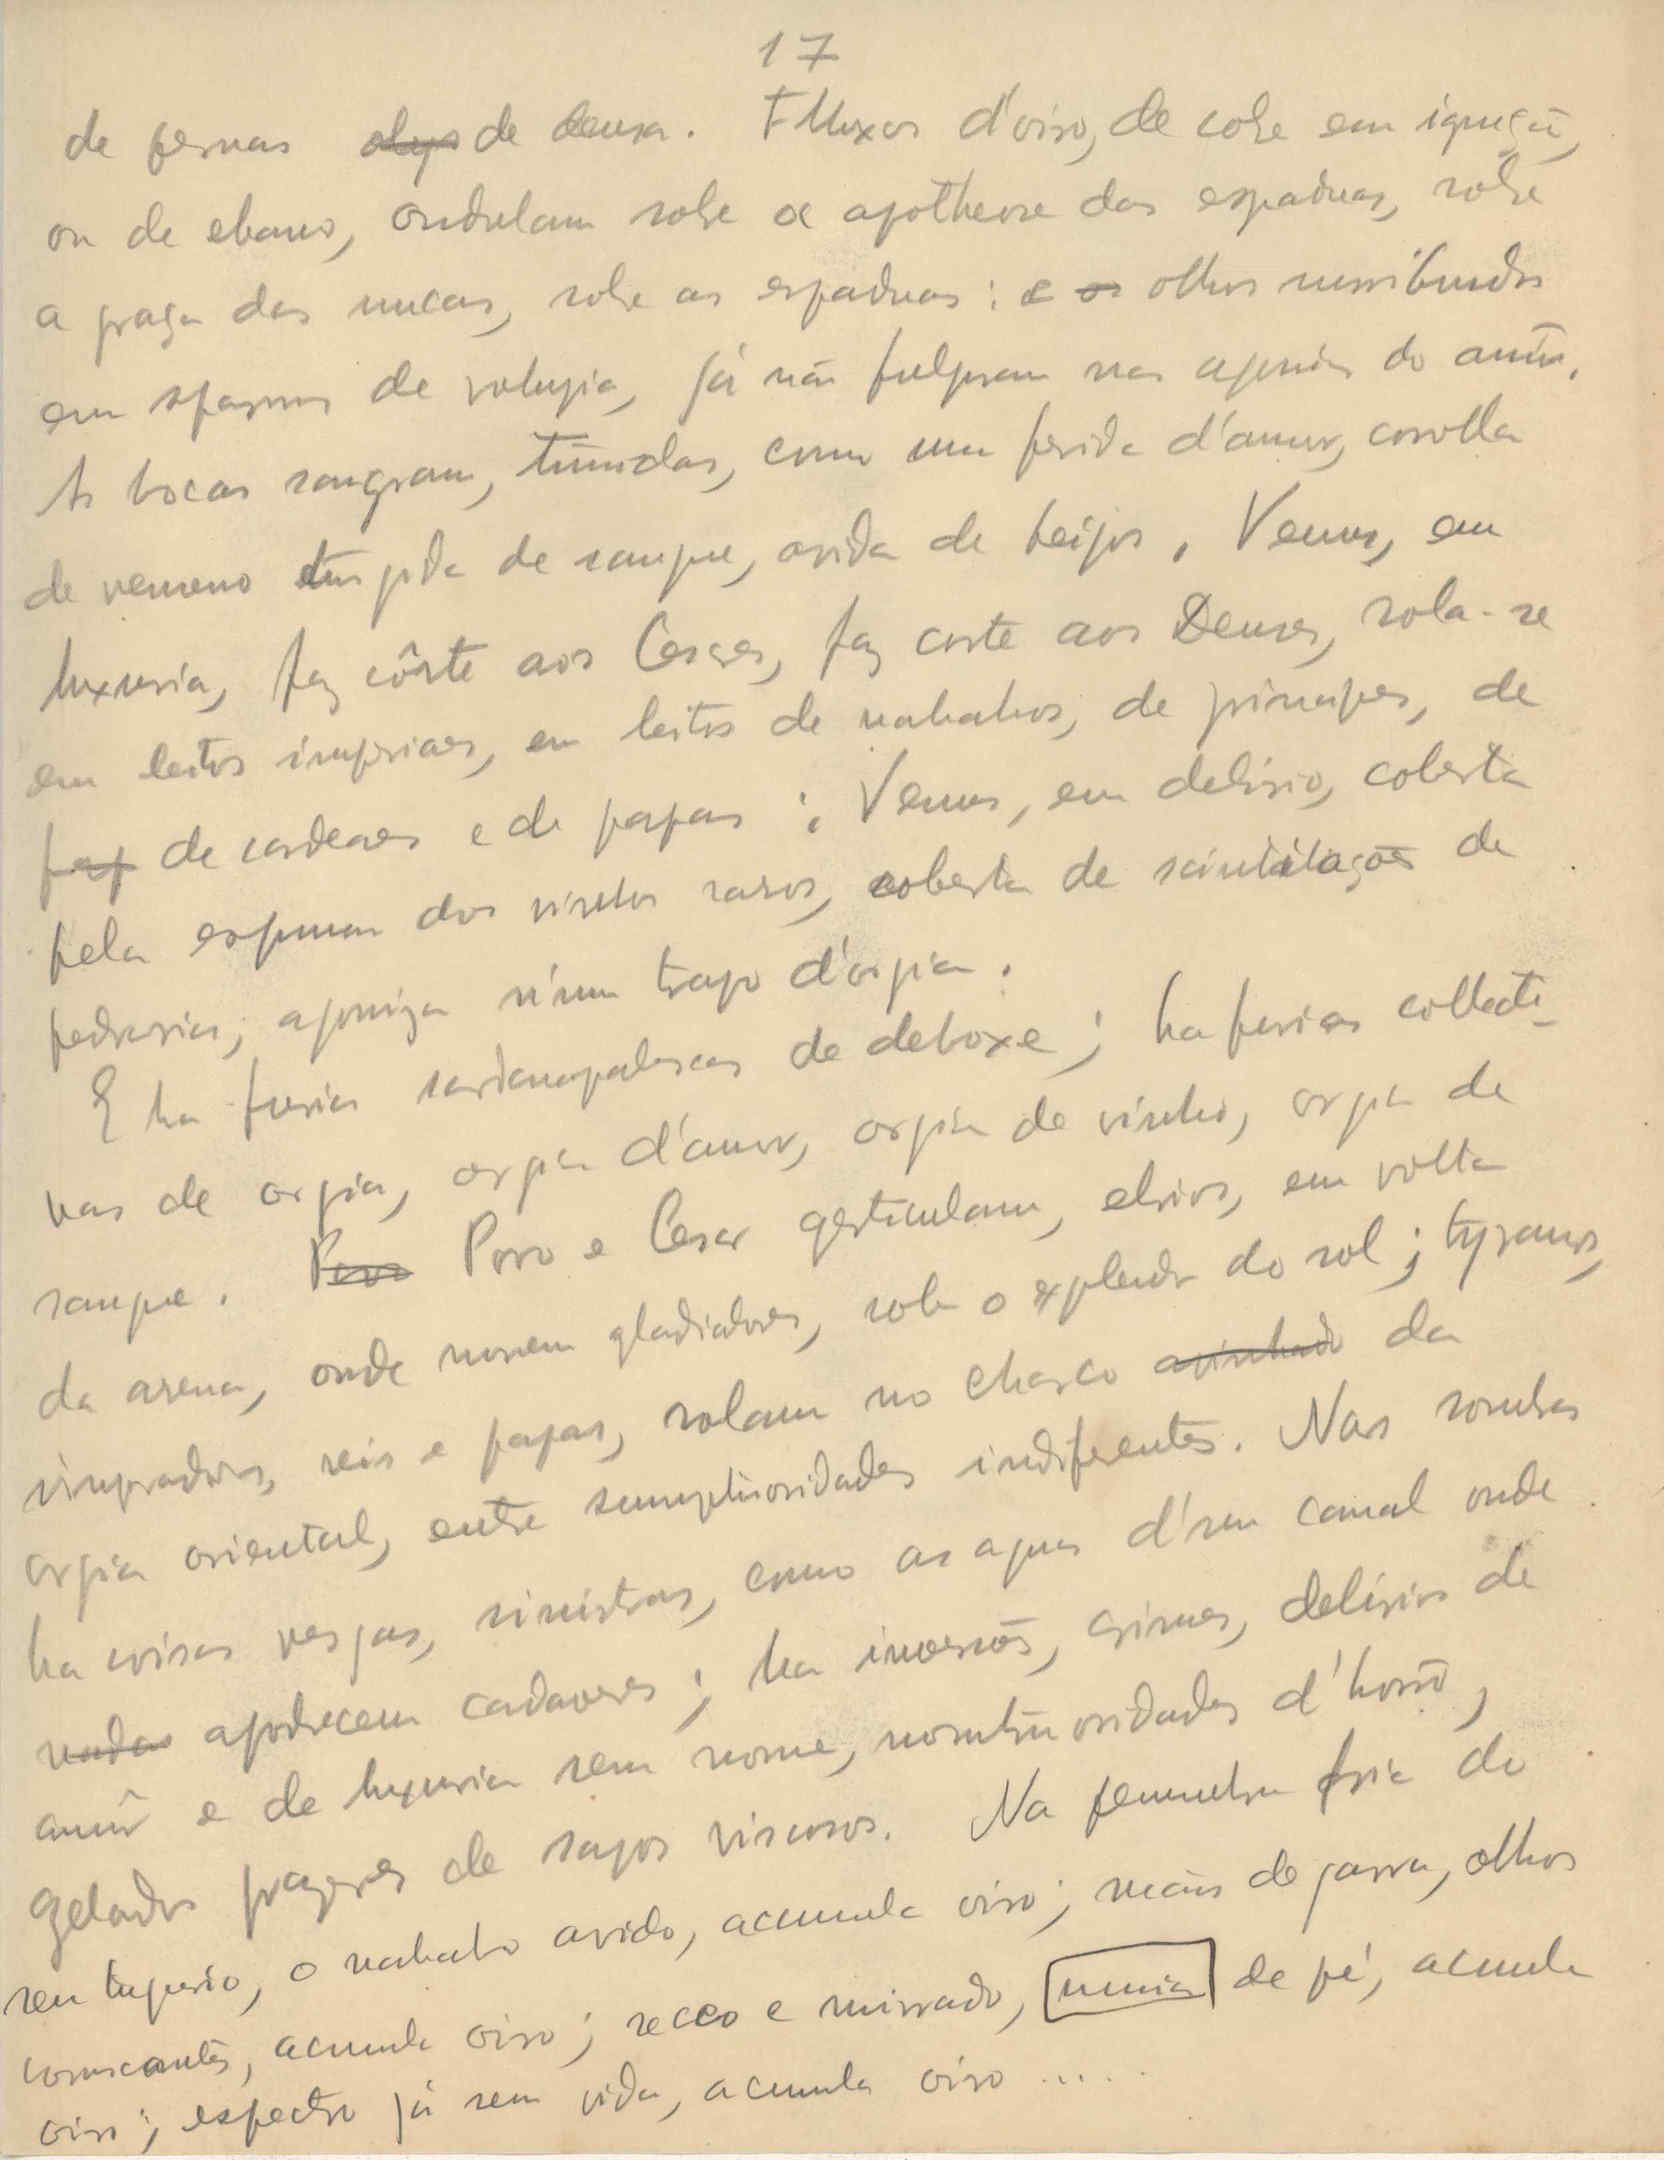 17
de pernas de deusa. Fluxos d'oiro, de cobre em ignição,
ou de ebano, ondulam sobre a apotheose das espaduas, sobre
a graça das nucas, sobre as espaduas: e os olhos moribundos
em spasmos de volupia, já não fulguram nas agonias do amôr.
As bocas sangram, tumidas, como uma ferida d'amor, corolla
de veneno turgida de sangue, avida de beijos. Venus, em
luxuria, faz côrte aos Cesares, faz corte aos Deuses, rola-se
em leitos imperiaes, em leitos de nababos, de principes, de
pap de cardeaes e de papas; Venus, em delirio, coberta
pela espuma dos vinhos raros, coberta de scintilações de
pedrarias, agoniza n'um trapo d'orgia.
E ha furias sardanapalescas de deboxe; ha furias collecti-
vas de orgia, orgia d'amor, orgia de vinho, orgia de
sangue. Povo Povo e Cesar gesticulam, ebrios, em volta
da arena, onde morrem gladiadores, sob o explendor do sol; tyranos,
imperadores, reis e papas, rolam no charco avinhado da
orgia oriental, entre sumptuosidades indiferentes. Nas sombras
ha coisas vesgas, sinistras, como as aguas d'um canal onde
nadas apodrecem cadaveres; ha inversões, crimes, delirios de
amôr e de luxuria sem nome, monstruosidades d'horrôr,
gelados prazeres de sapos viscosos. Na penumbra fria do
seu tugurio, o nababo avido, acumula oiro; mãos de garra, olhos
coruscantes, acumula oiro; secco e mirrado, mumia de pé, acumula
oiro; espectro já sem vida, acumula oiro .....